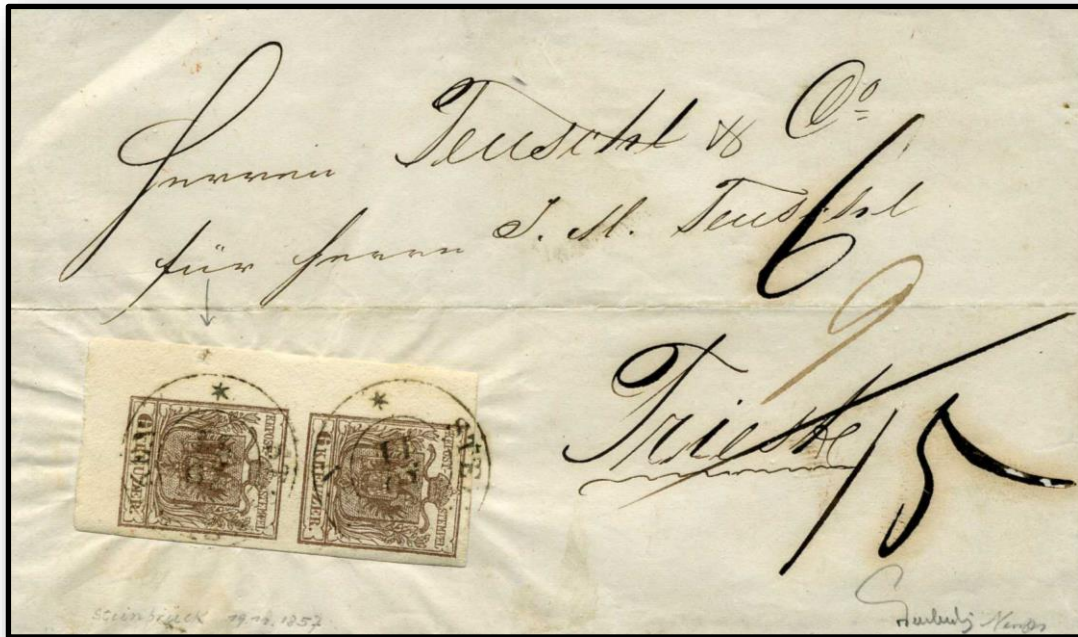 Herren Teuschl & Co
für Herrn J. M. Teuschl
6
9
Trieste
15
6 KREUZER.
STEMPEL
6 KREUZER.
STEMPEL
STE
Steinbrück 19.10.1857